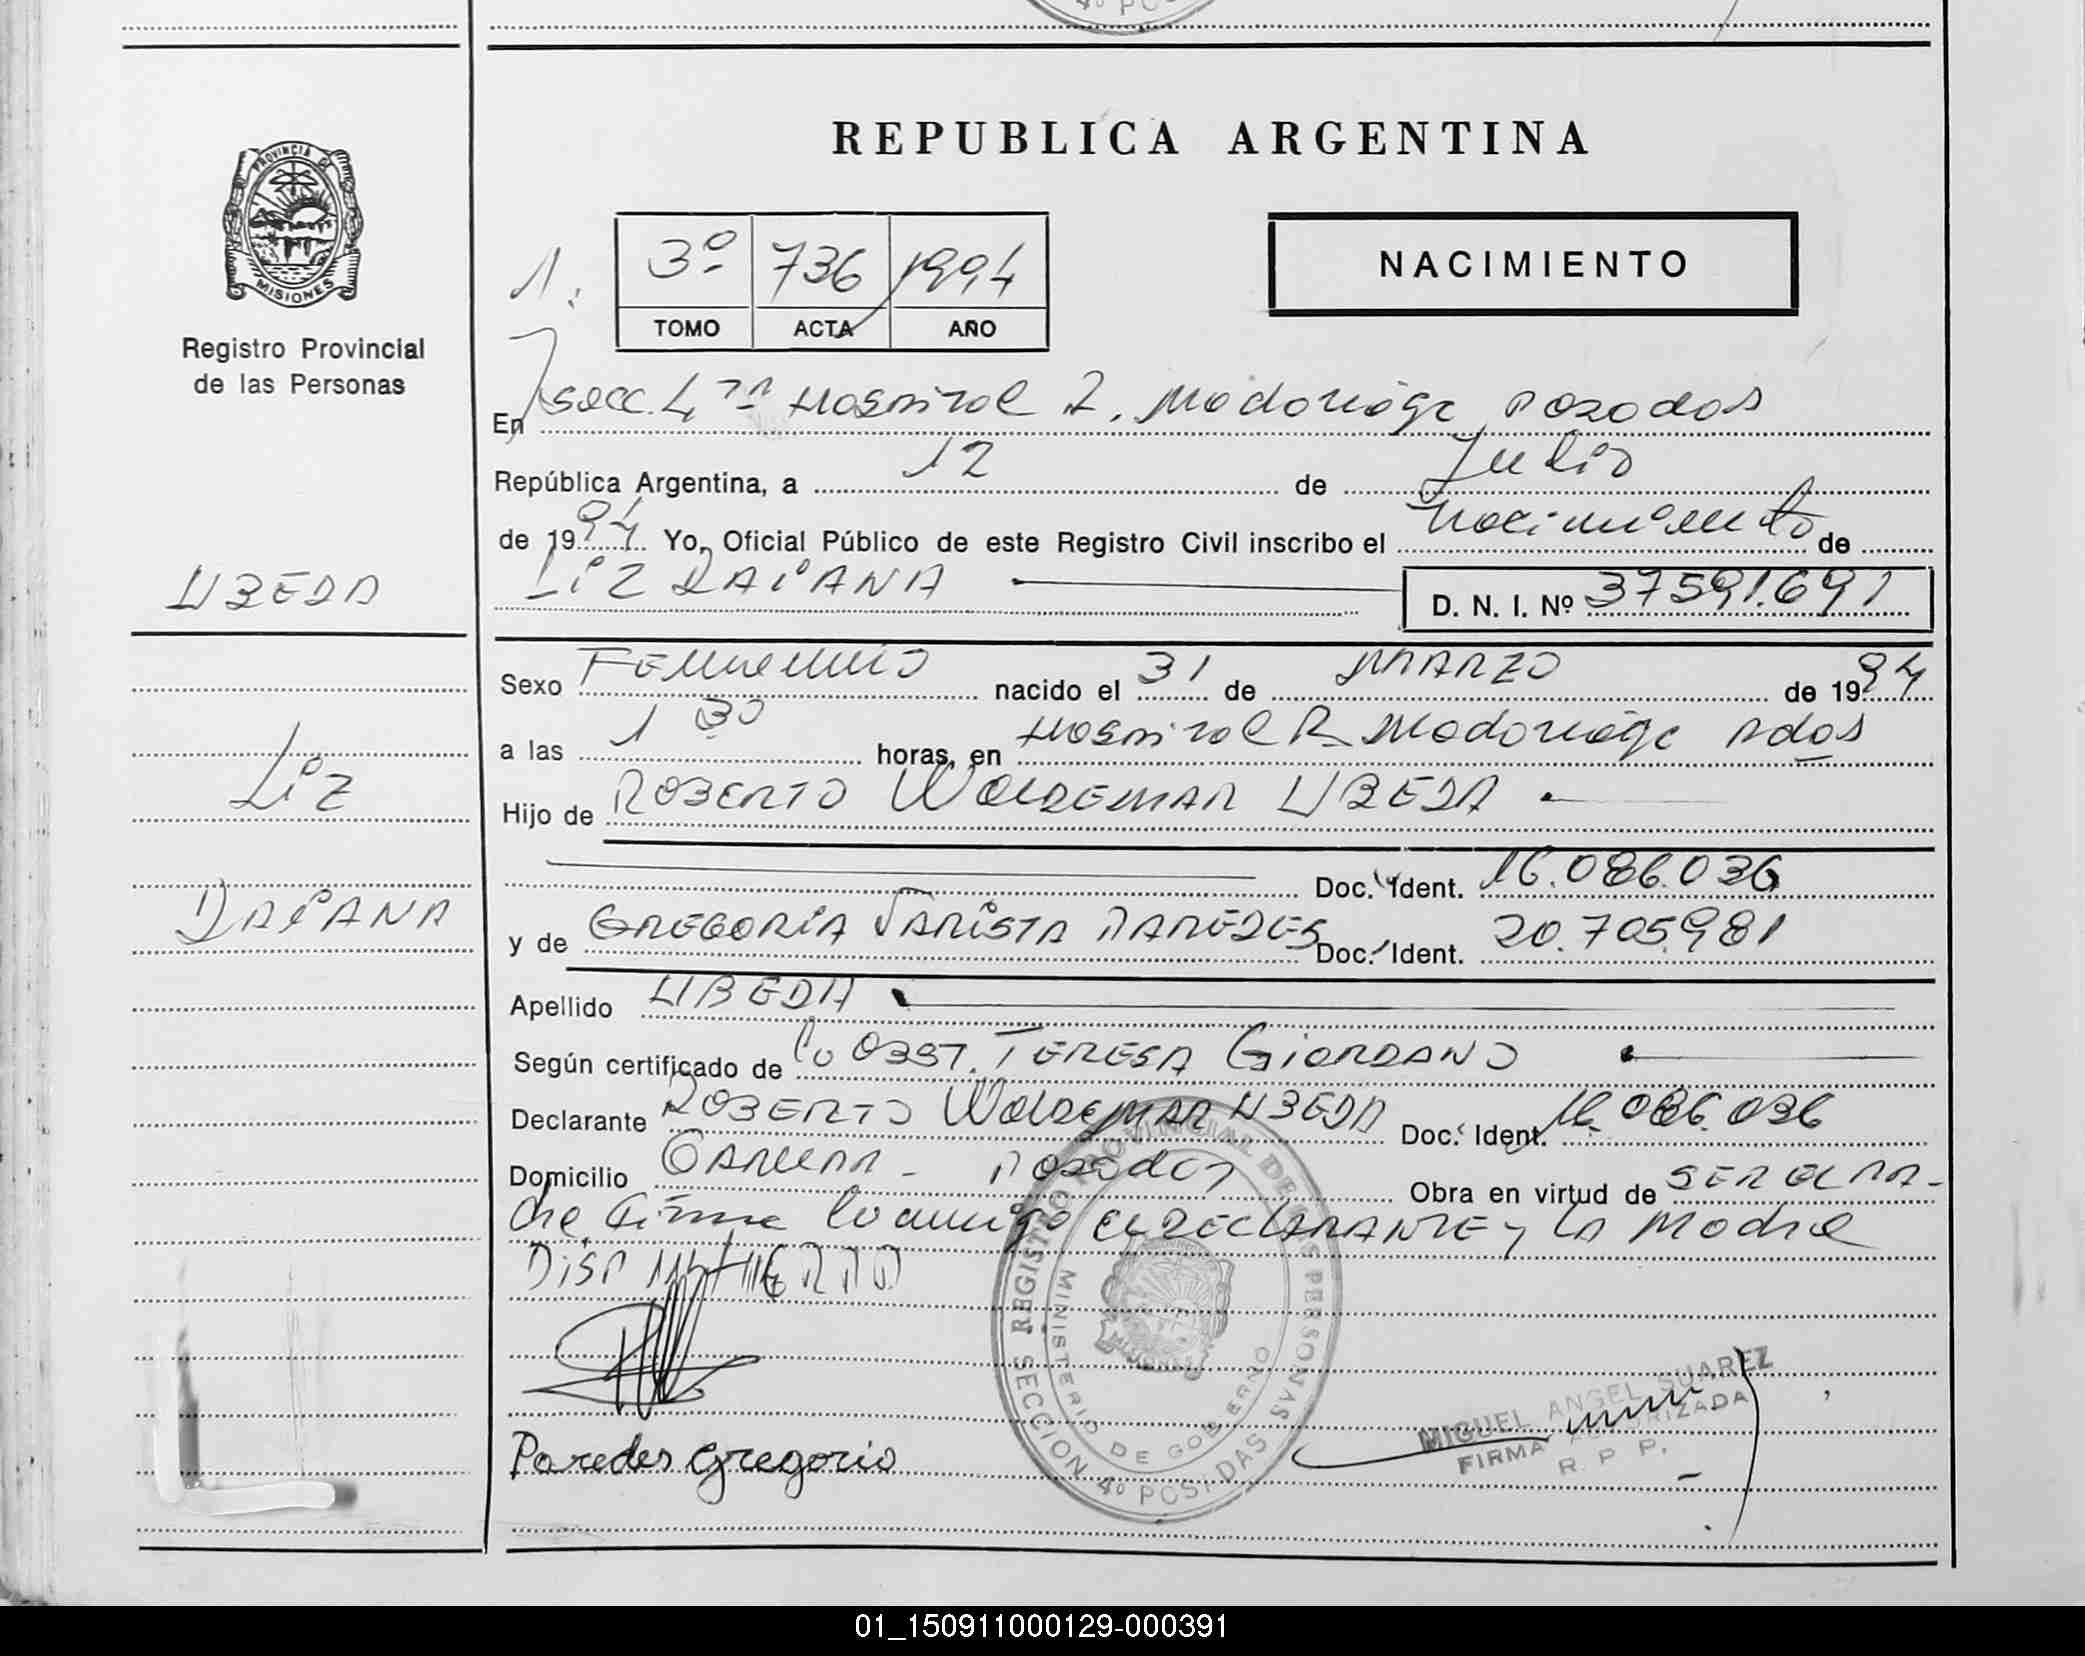 REPUBLICA ARGENTINA
PROVINCIA DE MISIONES
Registro Provincial
de las Personas
UBEDA
Liz
DAIANA
1.
3º 736 1994
TOMO ACTA AÑO
NACIMIENTO
En Secc. 4ta Hospital R. Madariaga Posadas
República Argentina, a 12 de Julio
de 1994 Yo, Oficial Público de este Registro Civil inscribo el nacimiento de
LIZ DAIANA D. N. I. Nº 37591.691
Sexo FEMENINO nacido el 31 de MARZO de 1994
a las 1 30 horas, en Hospital R. Madariaga Pdas
Hijo de ROBERTO WALDEMAR UBEDA
Doc. Ident. 16.086.036
y de GREGORIA PAREDES Doc. Ident. 20.705.981
Apellido UBEDA
Según certificado de OBST. TERESA GIORDANO
Declarante ROBERTO WALDEMAR UBEDA Doc. Ident. 16.086.036
Domicilio Posadas Obra en virtud de SER EL PA-
dre firma conmigo EL DECLARANTE y LA Madre
Paredes Gregoria
REGISTRO PROVINCIAL DE LAS PERSONAS
MINISTERIO DE GOBIERNO
SECCION 4º POSADAS
MIGUEL ANGEL SUAREZ
FIRMA AUTORIZADA
R. P. P.
01_150911000129-000391